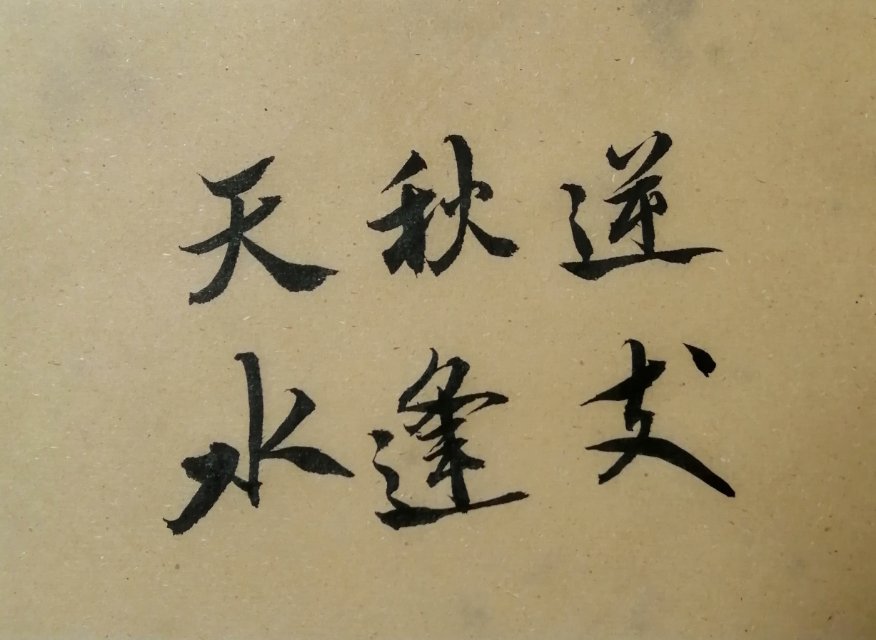 逆友
秋逢
天水